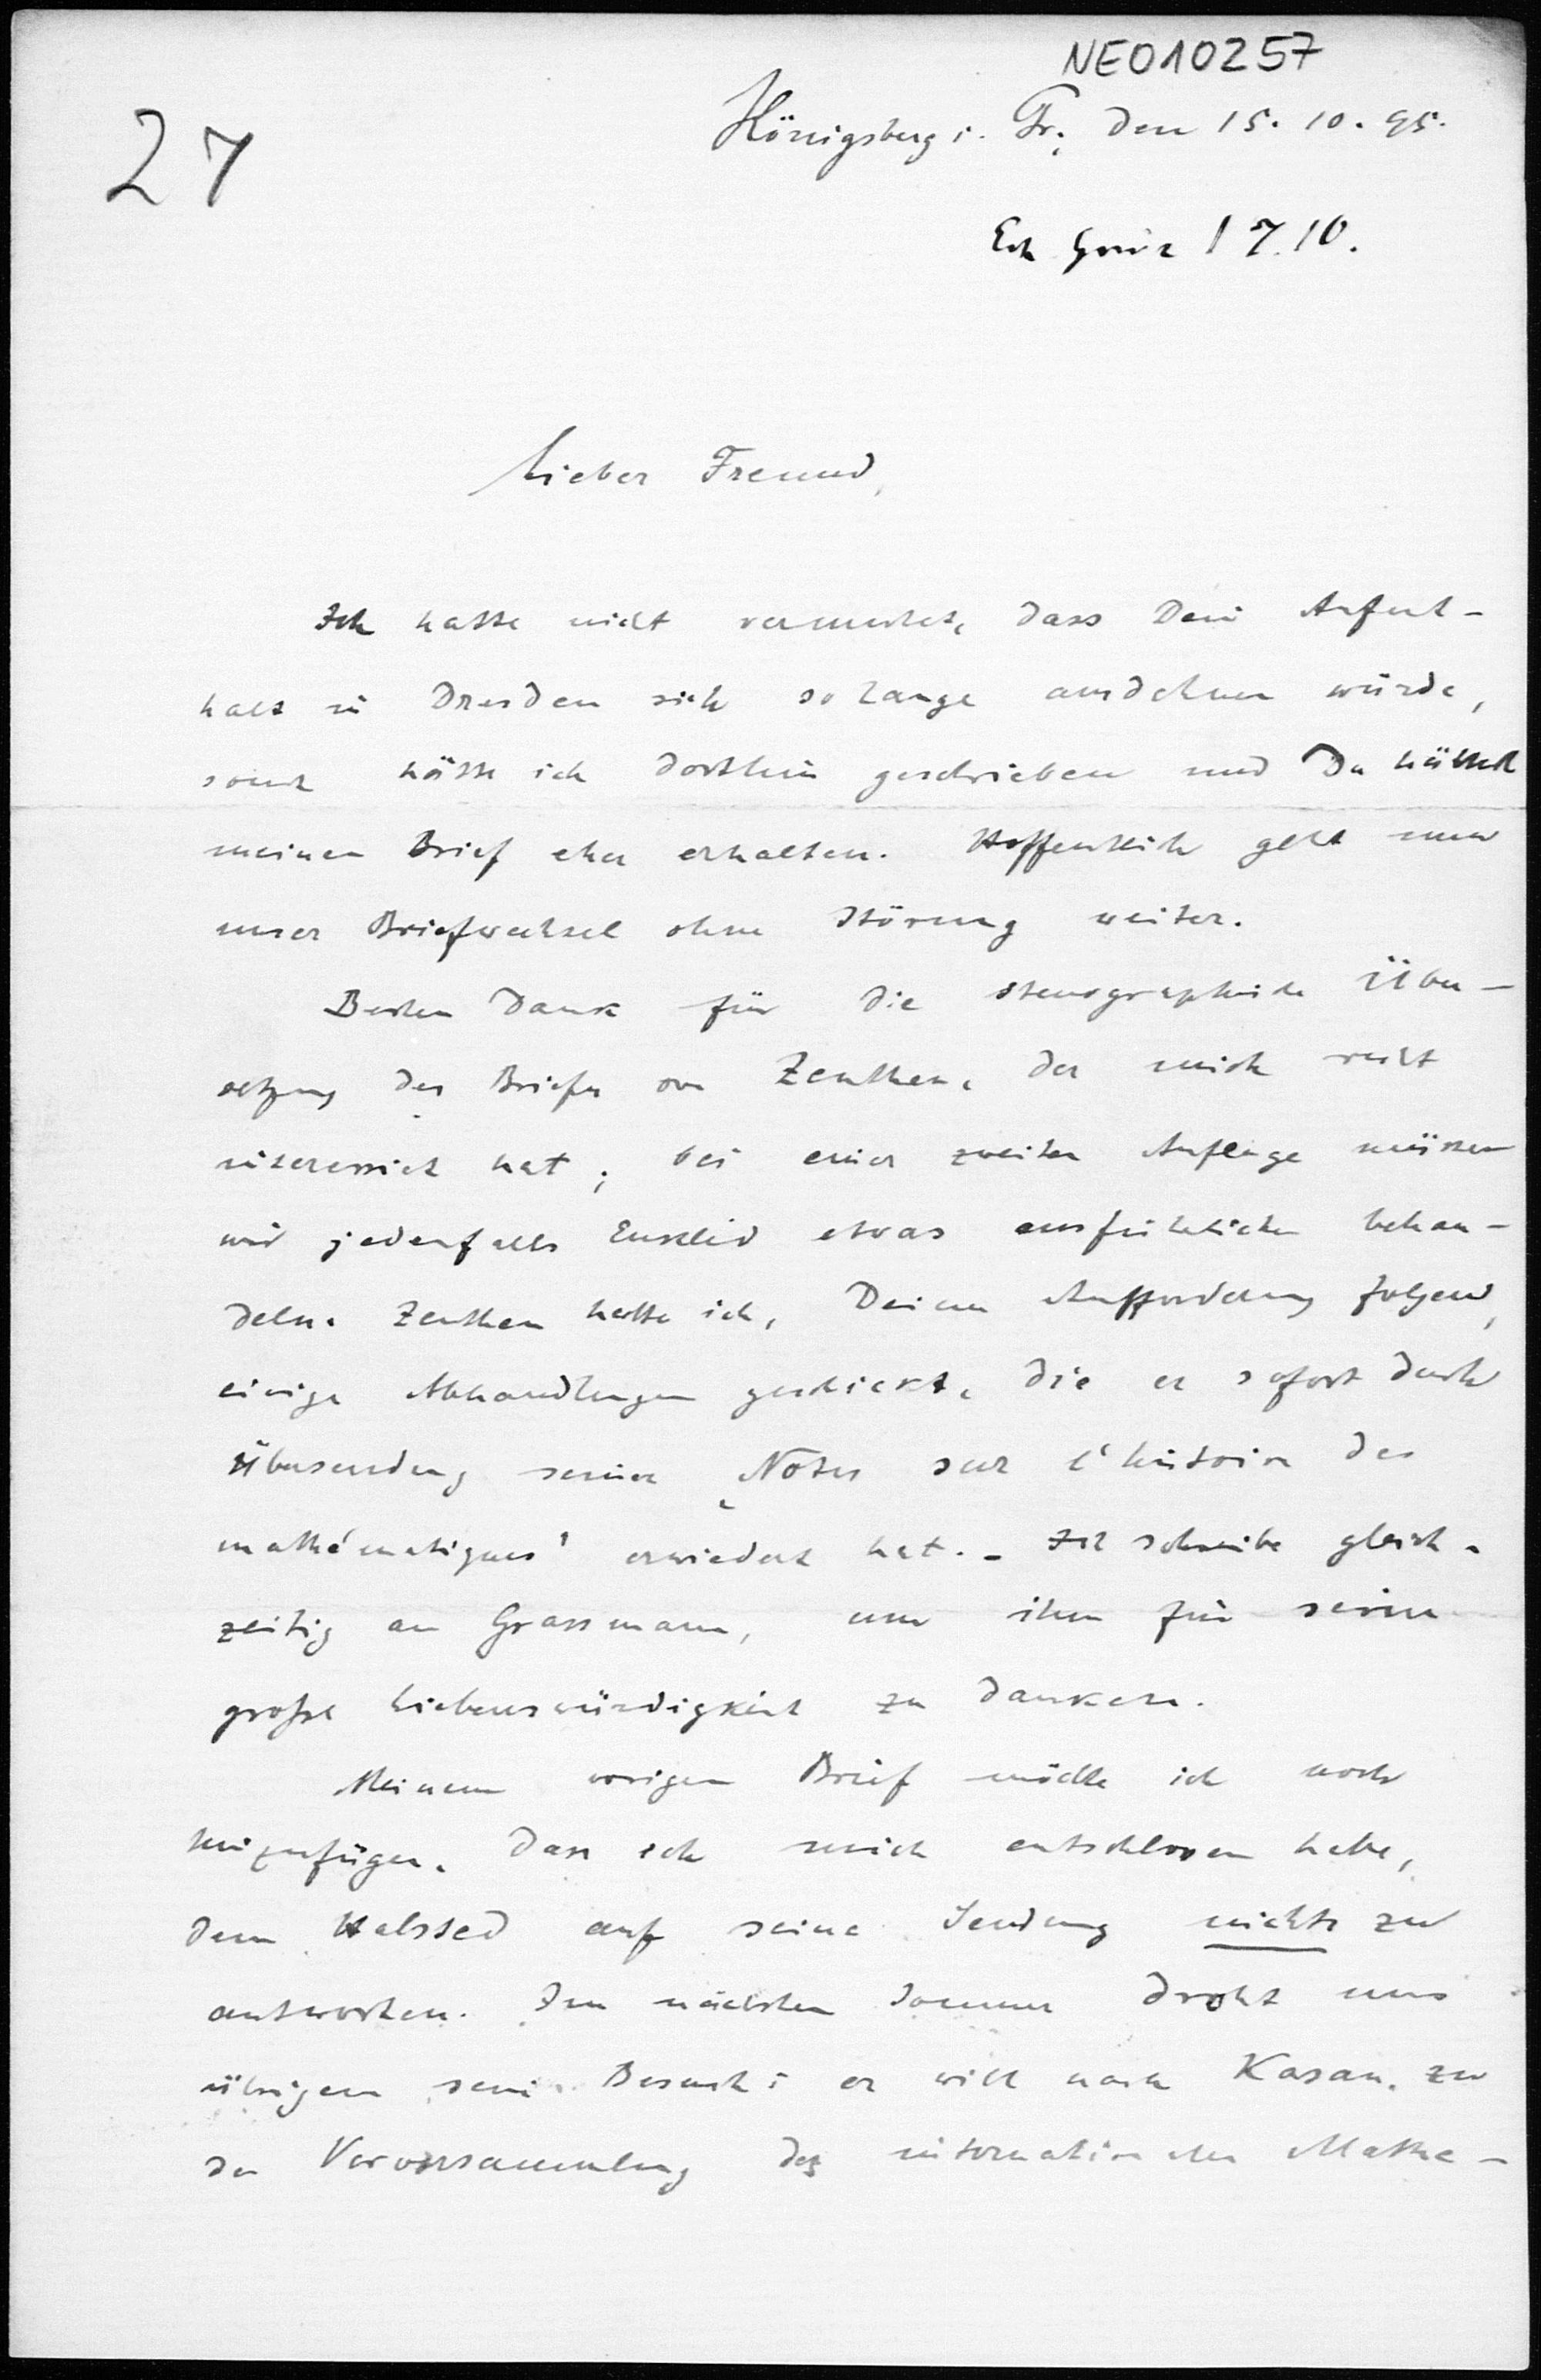 NE010257
27
Königsberg i. Pr., den 15. 10. 95.
17.10.
Lieber Freund,
Ich hatte nicht vermutet, dass Dein Aufent-
halt in Dresden sich so lange ausdehnen würde,
sonst hätte ich dorthin geschrieben und Du hättest
meinen Brief eher erhalten. Hoffentlich geht nun
unser Briefwechsel ohne Störung weiter.
Besten Dank für die stenographische Über-
setzung des Briefes von Zeuthen, der mich recht
interessiert hat; bei einer zweiten Auflage müssen
wir jedenfalls Euklid etwas ausführlicher behan-
deln. Zeuthen hatte ich, Deiner Aufforderung folgend,
einige Abhandlungen geschickt, die er sofort durch
Übersendung seiner „Notes sur l'histoire des
mathématiques' erwiedert hat. – Ich schreibe gleich-
zeitig an Grassmann, um ihm für seine
große Liebenswürdigkeit zu danken.
Meinem vorigen Brief möchte ich noch
hinzufügen, dass ich mich entschlossen habe,
dem Halsted auf seine Sendung nichts zu
antworten. Im nächsten Sommer droht uns
übrigens sein Besuch: er will nach Kasan, zu
der Vorversammlung des internationalen Mathe-